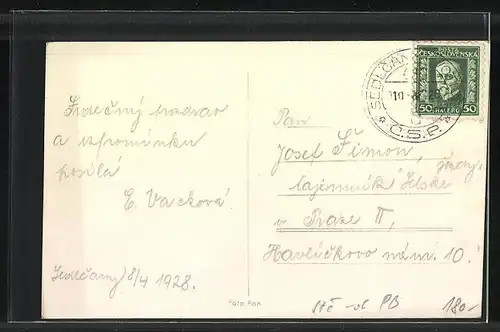 Srdečný pozdrav
a vzpomínku
posílá
E. Vacková
Sedlčany 8/4 1928.
Pan
Josef Šimon,
tajemník
v Praze II,
Havlíčkovo nám. 10.
POŠTA
ČESKOSLOVENSKÁ
50 HALÉŘŮ 50
SEDLČANY
Č.S.R.
Foto Fon
180-